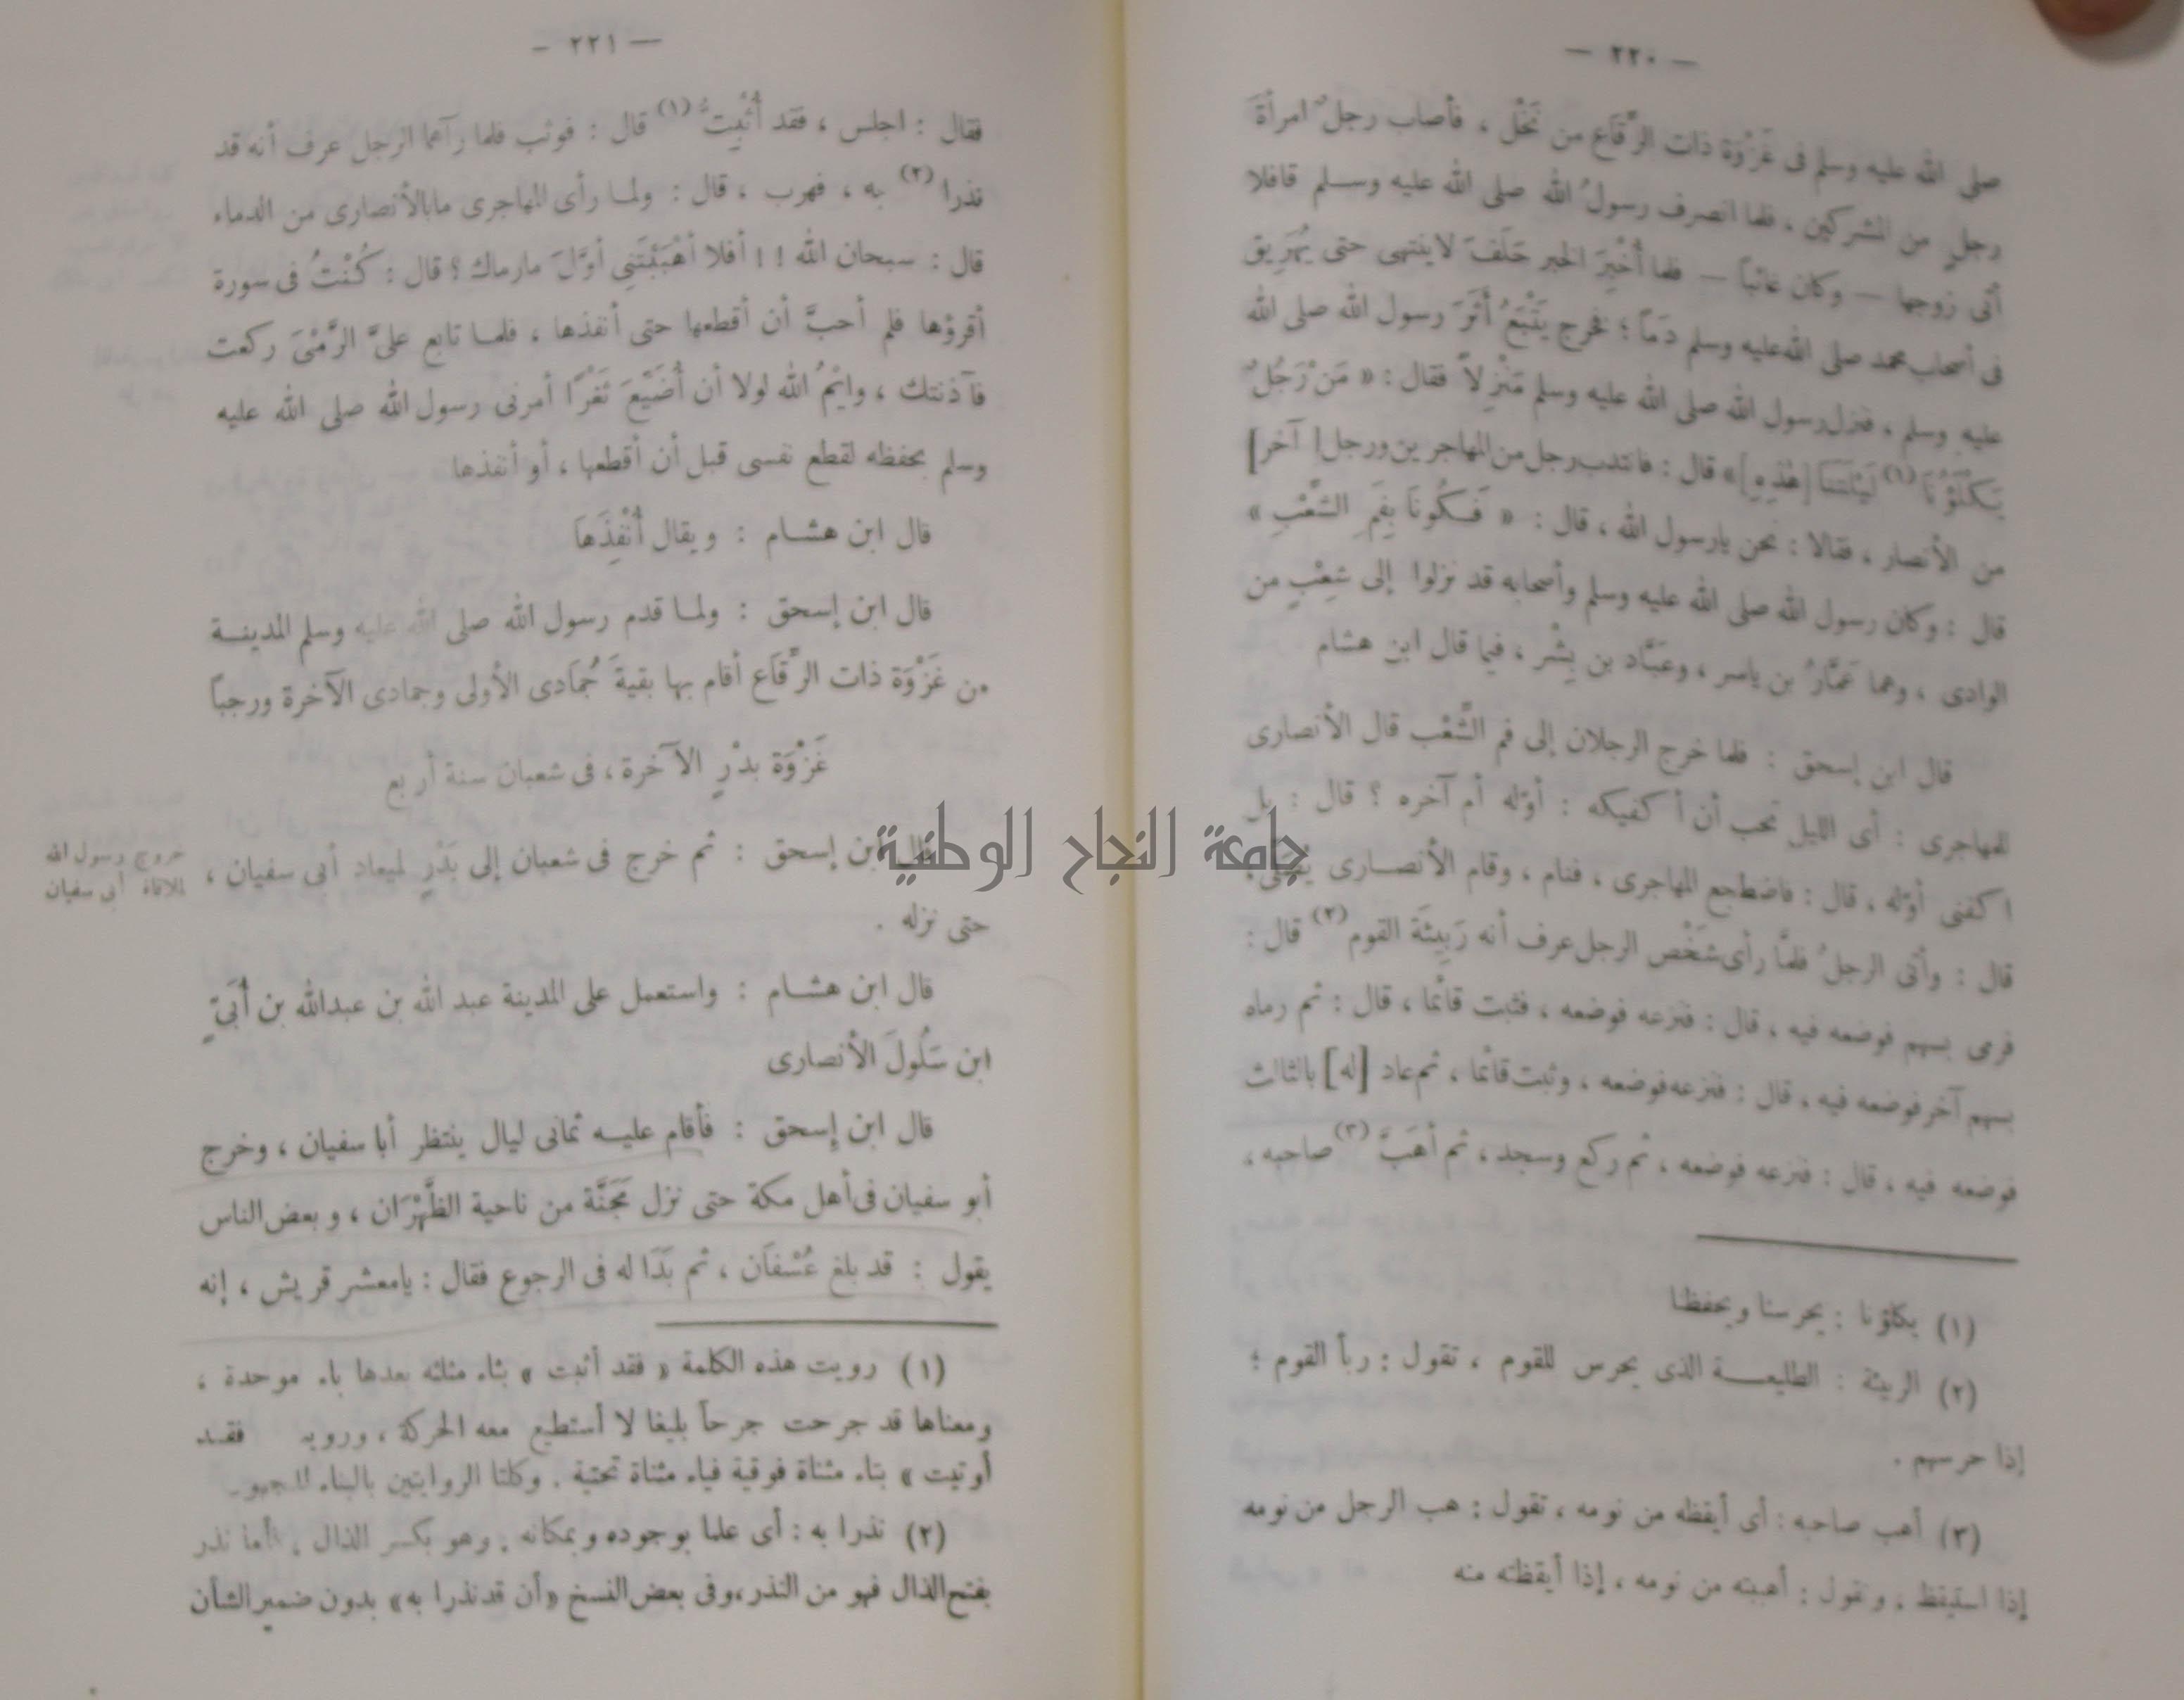 — ٢٢٠ —
صلى الله عليه وسلم فى غَزْوَة ذات الرِّقَاع من نَخْل ، فأصاب رجلٌ امرأةَ
رجلٍ من المشركين ، فلما انصرف رسولُ الله صلى الله عليه وسلم قافلا
أتى زوجها — وكان غائباً — فلما أُخْبِرَ الخبر حَلَفَ لا ينتهى حتى يُهَرِيق
فى أصحاب محمد صلى الله عليه وسلم دَماً ؛ فخرج يَتْبَعُ أَثَرَ رسول الله صلى الله
عليه وسلم ، فنزل رسول الله صلى الله عليه وسلم مَنْزِلاً فقال : « مَنْ رَجُلٌ
يَكْلَؤُنَا (١) لَيْلَتَنَا [هٰذِهِ] » قال : فانتدب رجل من المهاجرين ورجل [ آخر ]
من الأنصار ، فقالا : نحن يارسول الله ، قال : « فَكُونَا بِفَمِ الشِّعْبِ »
قال : وكان رسول الله صلى الله عليه وسلم وأصحابه قد نزلوا إلى شِعْبٍ من
الوادى ، وهما عَمَّارُ بن ياسر ، وعَبَّاد بن بِشْر ، فيما قال ابن هشام
قال ابن إسحق : فلما خرج الرجلان إلى فم الشِّعْب قال الأنصارى
للمهاجرى : أى الليل تحب أن أكفيكه : أوّله أم آخره ؟ قال : بل
اكفنى أوّله ، قال : فاضطجع المهاجرى ، فنام ، وقام الأنصارى يُصَلِّى
قال : وأتى الرجلُ فلمَّا رأى شَخْص الرجل عرف أنه رَبِيئَة القوم (٢) قال :
فرمى بسهم فوضعه فيه ، قال : فنزعه فوضعه ، فثبت قائما ، قال : ثم رماه
بسهم آخر فوضعه فيه ، قال : فنزعه فوضعه ، وثبت قائما ، ثم عاد [له] بالثالث
فوضعه فيه ، قال : فنزعه فوضعه ، ثم ركع وسجد ، ثم أهَبَّ (٣) صاحبه ،
(١) يكلؤنا : يحرسنا ويحفظنا
(٢) الربيئة : الطليعة الذى يحرس للقوم ، تقول : ربأ القوم ؛
إذا حرسهم .
(٣) أهب صاحبه : أى أيقظه من نومه ، تقول : هب الرجل من نومه
إذا استيقظ ، وتقول : أهببته من نومه ، إذا أيقظته منه
— ٢٢١ —
فقال : اجلس ، فقد أُثْبِتُّ (١) قال : فوثب فلما رآهما الرجل عرف أنه قد
نذرا (٢) به ، فهرب ، قال : ولما رأى المهاجرى مابالأنصارى من الدماء
قال : سبحان الله !! أفلا أهْبَبْتَنِى أوَّلَ مارماك ؟ قال : كُنْتُ فى سورة
أقرؤها فلم أحبَّ أن أقطعها حتى أنفذها ، فلما تابع علىَّ الرَّمْىَ ركعت
فآذنتك ، وايْمُ الله لولا أن أُضَيِّعَ ثَغْرًا أمرنى رسول الله صلى الله عليه
وسلم بحفظه لقطع نفسى قبل أن أقطعها ، أو أنفذها
قال ابن هشام : ويقال أُنْفِذَهَا
قال ابن إسحق : ولما قدم رسول الله صلى الله عليه وسلم المدينة
من غَزْوَة ذات الرِّقَاع أقام بها بقيةَ جُمَادى الأولى وجمادى الآخرة ورجباً
غَزْوَة بدْرٍ الآخرة ، فى شعبان سنة أربع
قال ابن إسحق : ثم خرج فى شعبان إلى بَدْرٍ لميعاد أبى سفيان ،
حتى نزله .
خروج رسول الله
لملاقاة أبى سفيان
قال ابن هشام : واستعمل على المدينة عبد الله بن عبدالله بن أُبَىٍّ
ابن سَلُولَ الأنصارى
قال ابن إسحق : فأقام عليه ثمانى ليال ينتظر أبا سفيان ، وخرج
أبو سفيان فى أهل مكة حتى نزل مَجَنَّة من ناحية الظَّهْرَان ، وبعض الناس
يقول : قد بلغ عُسْفَان ، ثم بَدَا له فى الرجوع فقال : يامعشر قريش ، إنه
(١) رويت هذه الكلمة « فقد أثبت » بثاء مثلثه بعدها باء موحدة ،
ومعناها قد جرحت جرحاً بليغا لا أستطيع معه الحركة ، ورويه فقد
أوتيت » بتاء مثناة فوقية فياء مثناة تحتية . وكلتا الروايتين بالبناء للمجهو
(٢) نذرا به : أى علما بوجوده وبمكانه ، وهو بكسر الذال ، فأما نذر
بفتح الذال فهو من النذر ، وفى بعض النسخ « أن قد نذرا به » بدون ضمير الشأن
جامعة النجاح الوطنية